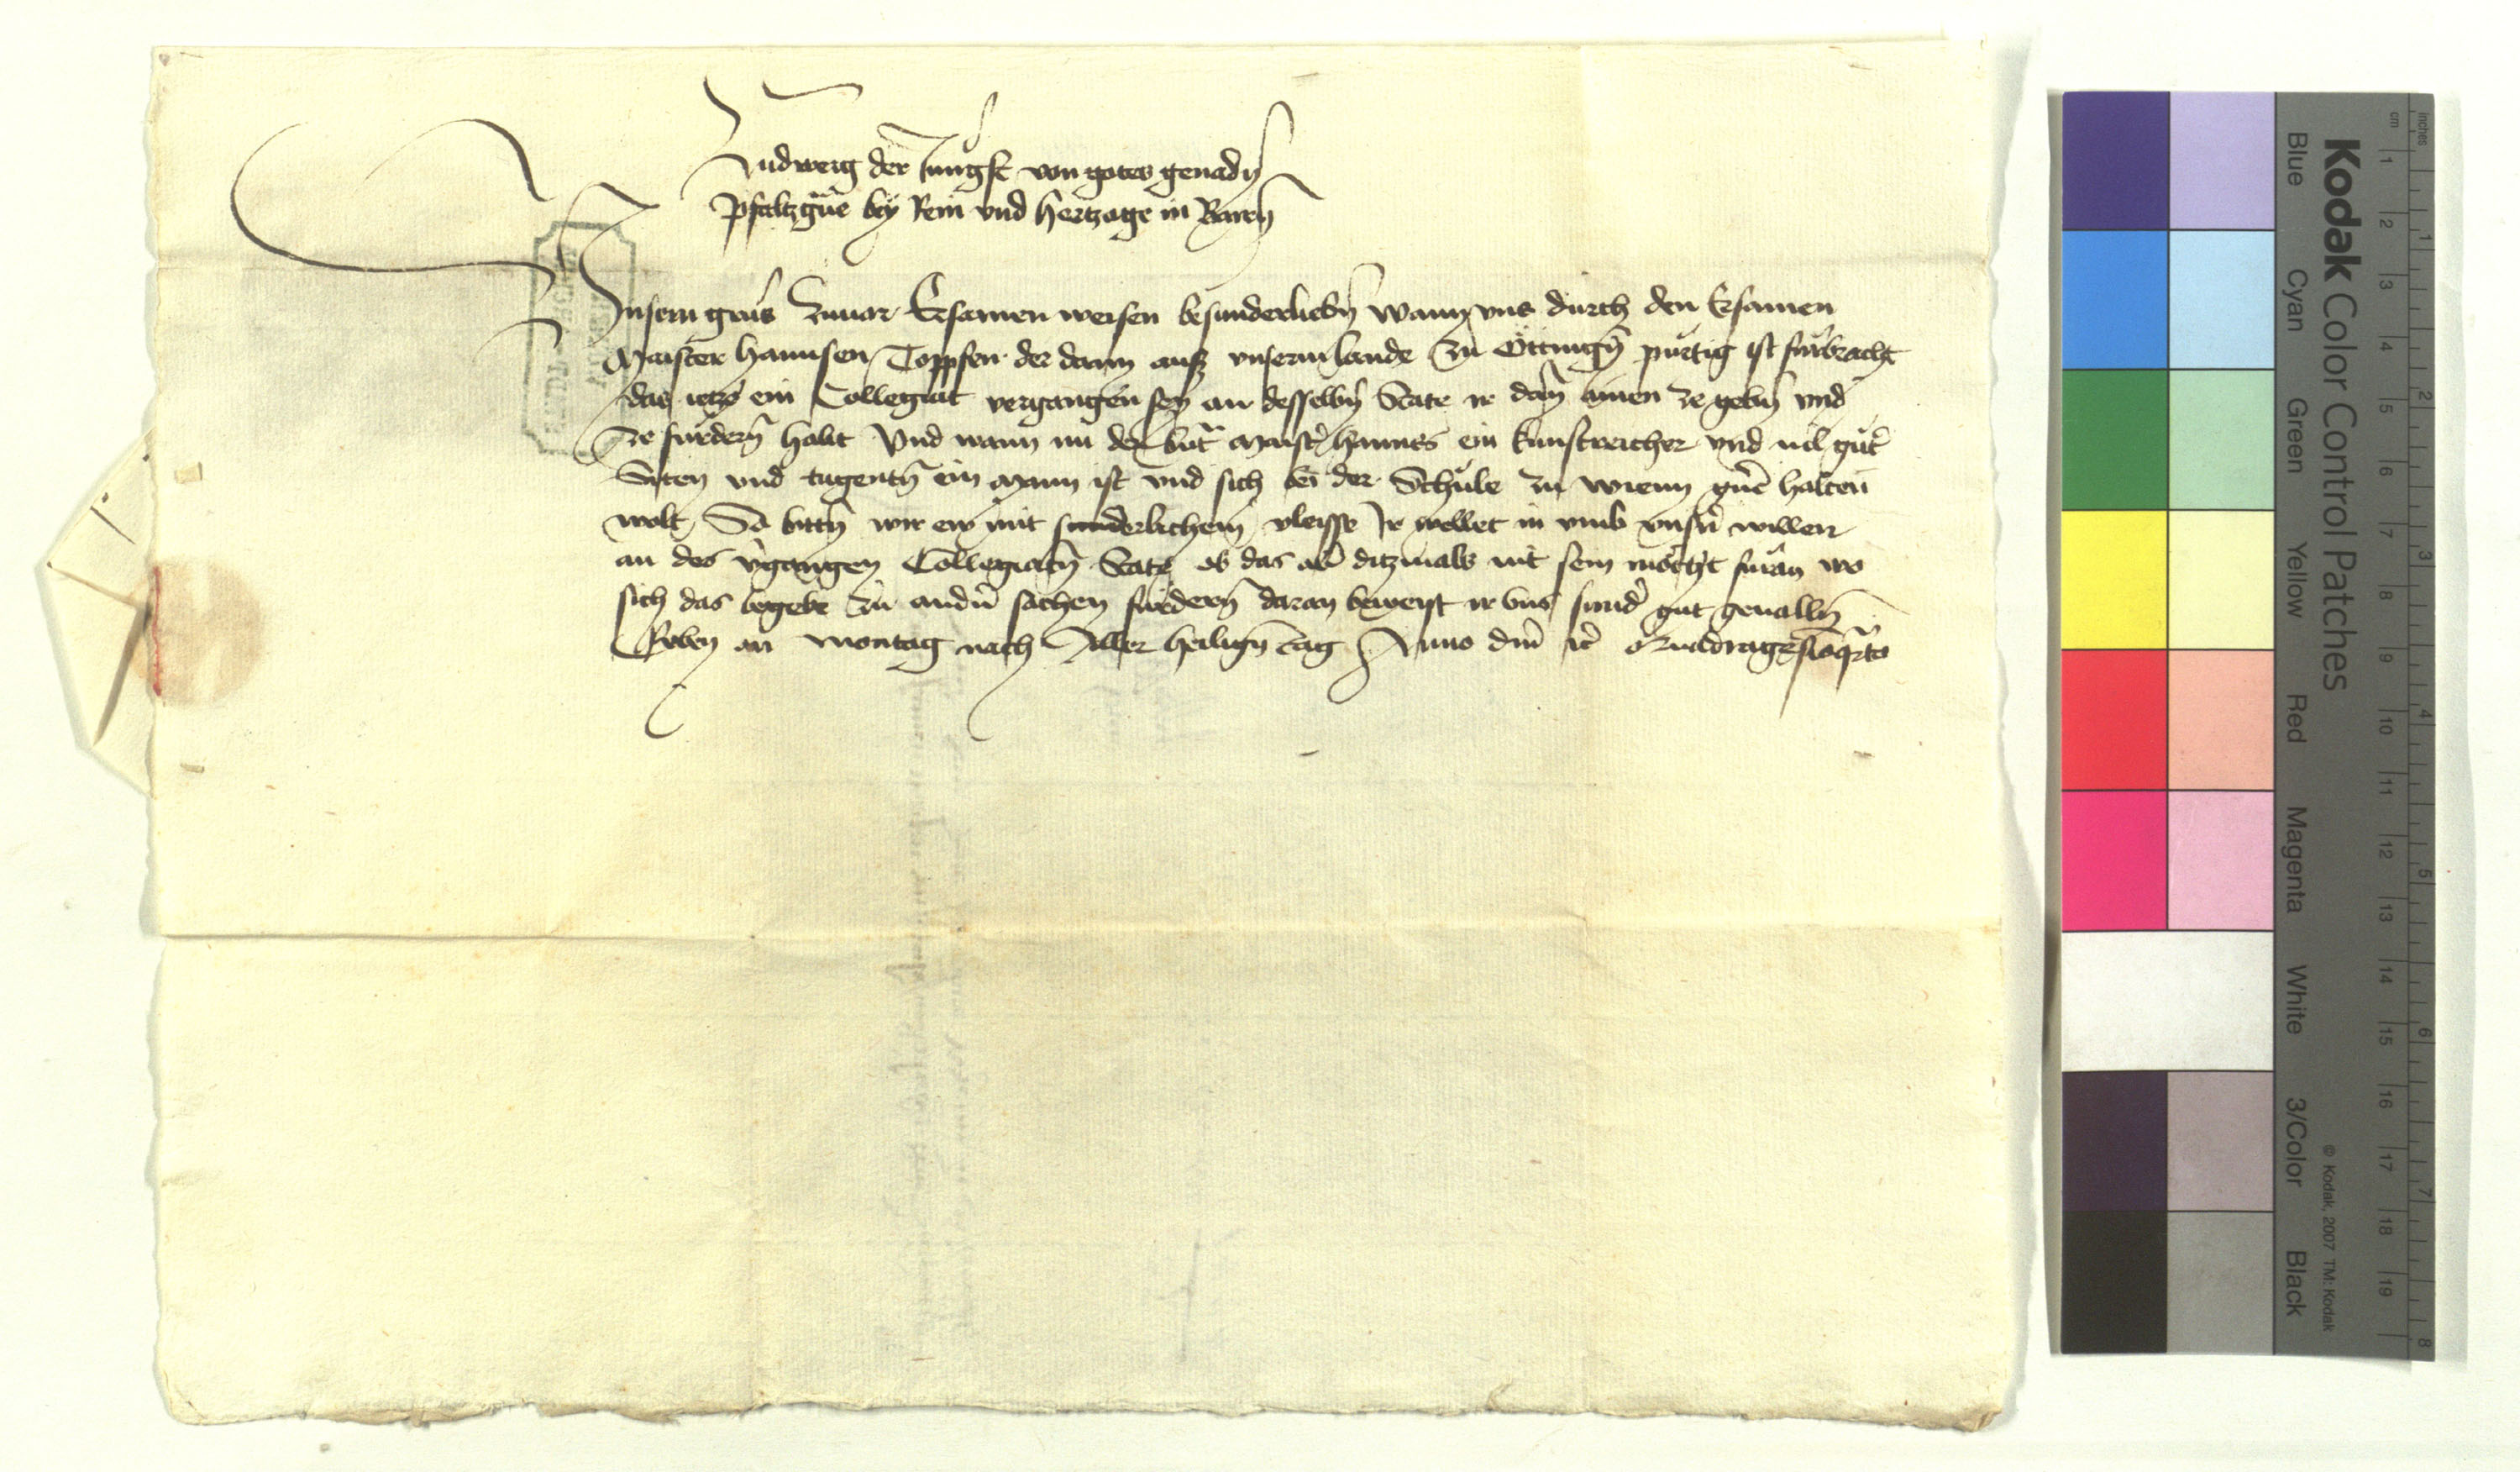 Ludweig der Jungst von gotes genadn
Pfaltzgrave bey Rein und Hertzoge in Bairn
Unsern grus zuvor Ersamen weisen besunderliebn wann uns durch den Ersamen
Maister Hannsen Toppfen der dann ausz unserm lande zu Öttingn pürtig ist fürbracht
das ietzo ein Collegiat vergangen sey an desselbn State ir dann ainen ze gebn und
ze fürdern habt Und wann nu der Maister Hanns ein kunstreicher und vil guter
Siten und tugentn ein Mann ist und sich bei der Schule zu Wienn halten
wolt So bittn wir ew mit sunderlichem vleisse Ir wellet in umb unsern willen
an des vergangen Collegiatn State ob das aber ditzmals nit sein möcht füran wo
sich das begebe zu andern sachen fürdern daran beweist ir uns sunder gut gevalln
Geben an Montag nach Aller heilign tag Anno dni etc Quadragesimoquarto
Kodak Color Control Patches
Blue Cyan Green Yellow Red Magenta White 3/Color Black
© Kodak, 2007 TM: Kodak
inches 1 2 3 4 5 6 7 8
cm 1 2 3 4 5 6 7 8 9 10 11 12 13 14 15 16 17 18 19